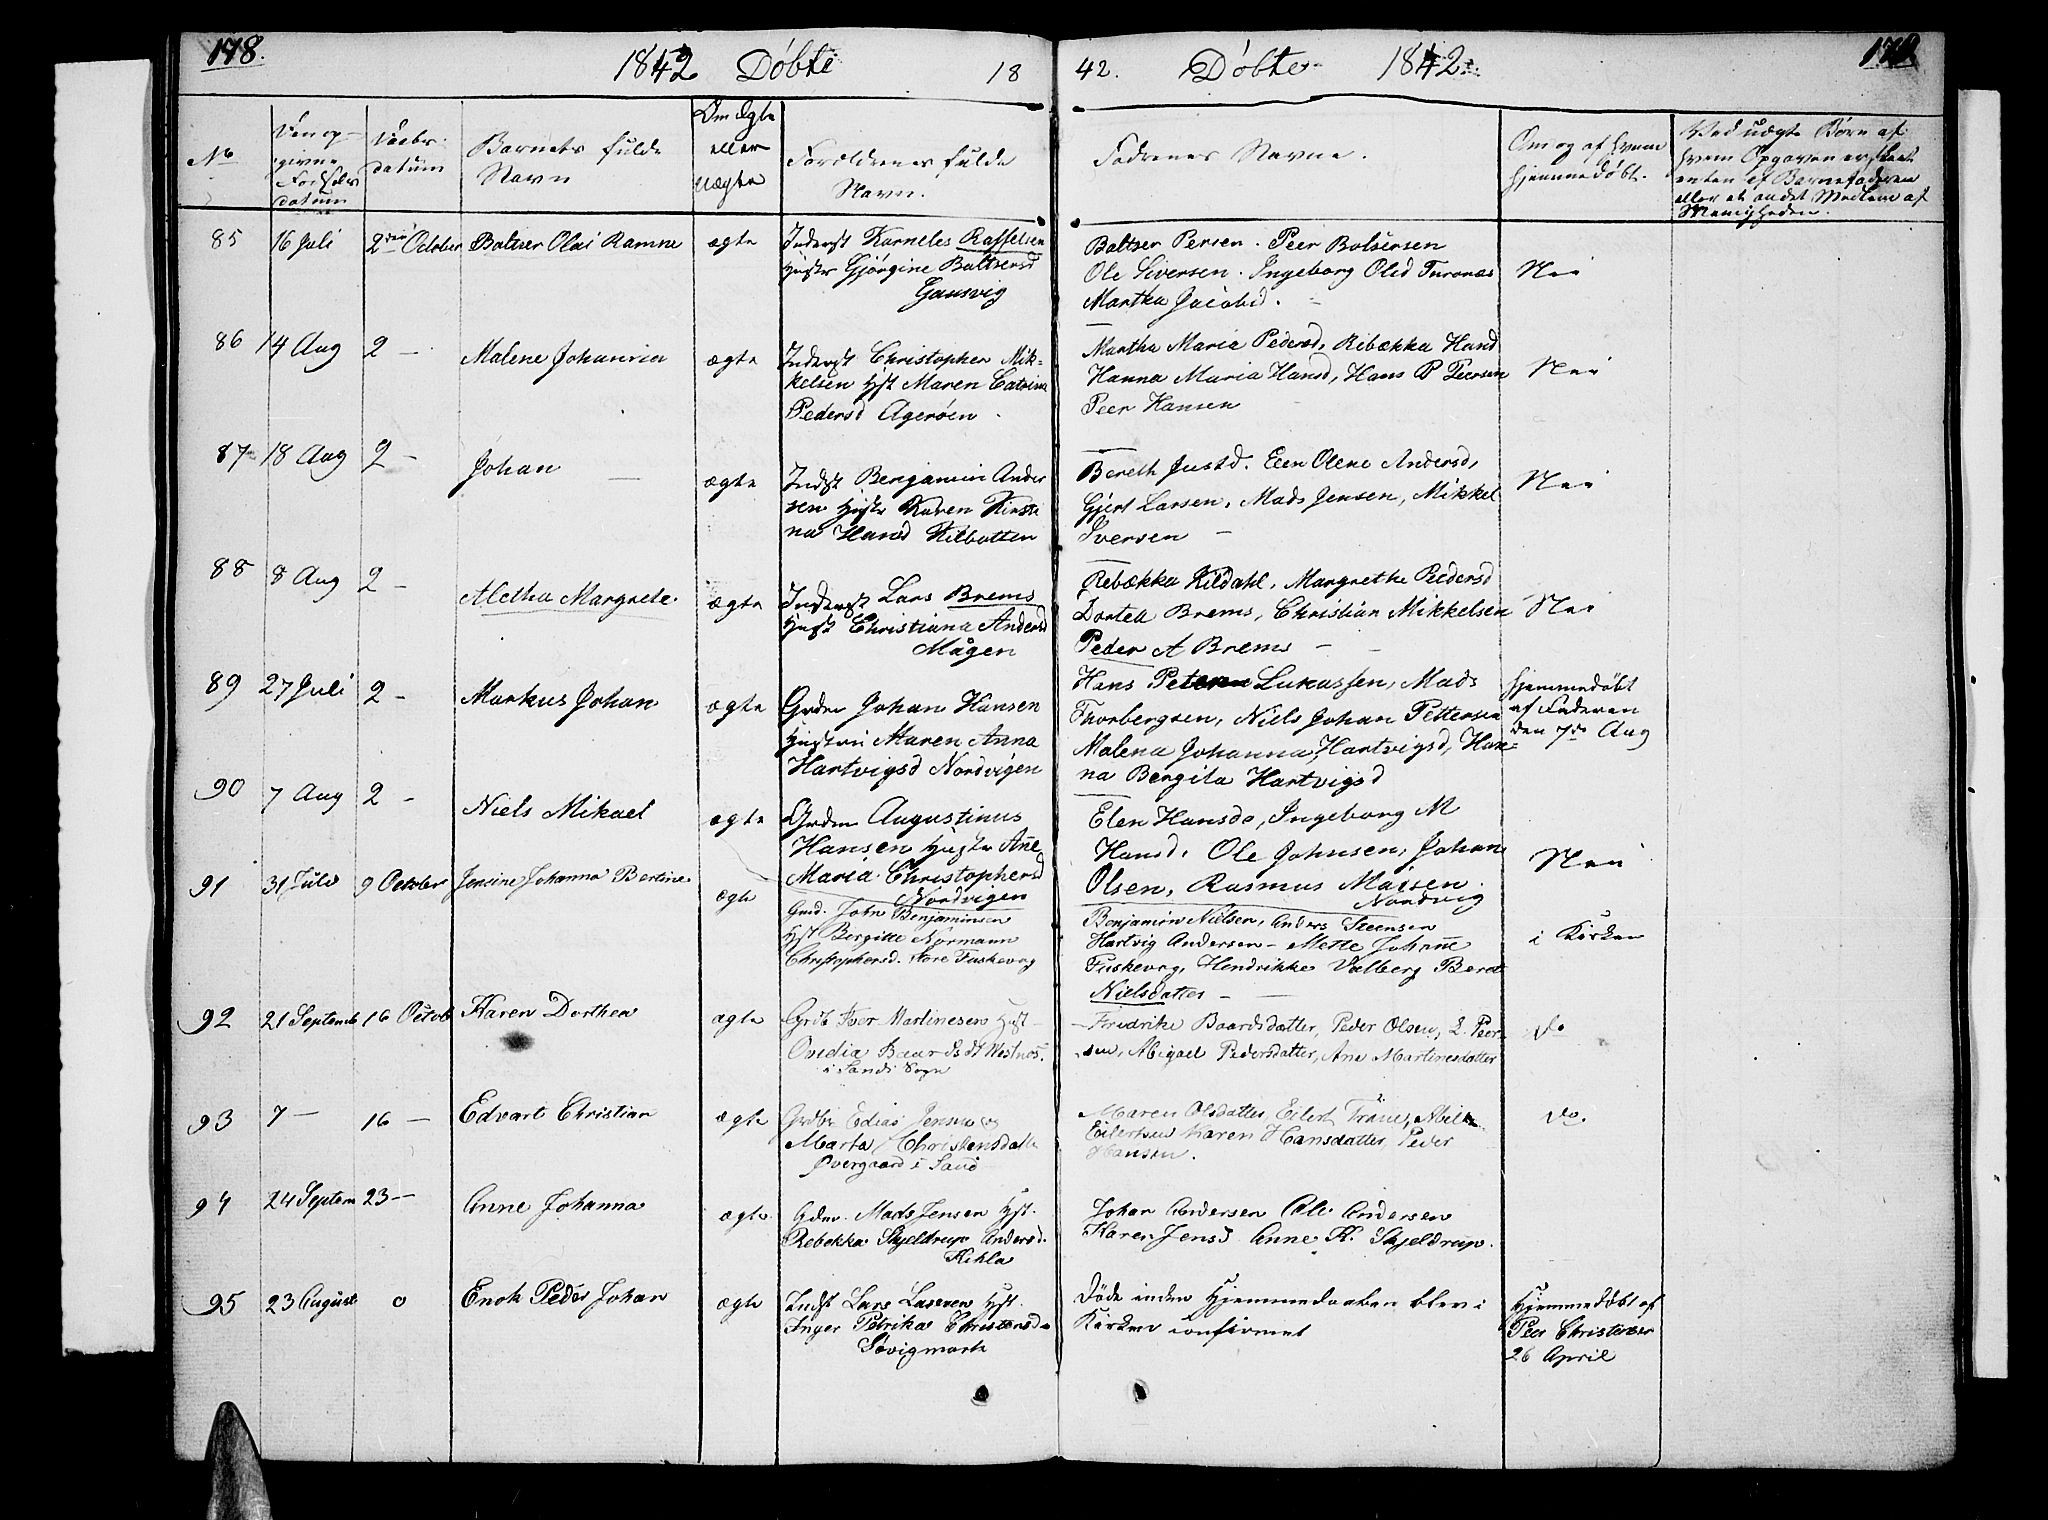 178.
1842 Döbte 18
42. Döbte 1842.
178
No
Den op-
givne
Fødsels
datum
Daabs-
datum
Barnets fulde
Navn
Om ægte
eller
uægte
Forældrenes fulde
Navn.
Fadrenes Navne.
Om og af hvem
hjemmedøbt.
Ved uægte Børn af
hvem Opgaven er skeet
enten af Barnefaderen
eller et andet Medlem af
Menigheden.
85 16 Juli 2den October Baltser Olai Ramne ægte
Inderst Karneles Raffelsen
Hustr Gjørgine Baltsersd
Gausvig
Baltser Persen. Peer Baltsersen
Ole Siversen. Ingeborg Olsd
Martha Jacobsd.
Nei
86 14 Aug 2 - Malene Johanna ægte
Inderst Christopher Mik-
kelsen Hst Maren Catrina
Pedersd Agerøen
Martha Maria Pedersd, Ribækka Hansd
Hanna Maria Hansd, Hans P Peersen
Peer Hansen
Nei
87 18 Aug 2 - Johan ægte
Indst Benjamin Ander
sen Hustr Karen Kirsti
na Hansd Kilbotten
Bereth Justd. Elen Olene Andersd,
Gjert Larsen, Mads Jensen, Mikkel
Iversen
Nei
88 8 Aug 2 - Aletha Margrete ægte
Inderst Lars Brems
Hustr Christiana Andersd
Mågen
Rebækka Kildahl, Margrethe Pedersd
Dortea Brems, Christian Mikkelsen
Peder A Brems
Nei
89 27 Juli 2 - Markus Johan ægte
Grdm Johan Hansen
Hustru Maren Anna
Hartvigsd Nordvigen
Hans Petersen Lukassen, Mads
Thorbergsen, Niels Johan Pettersen
Malena Johanna Hartvigsd, Han-
na Bergita Hartvigsd
Hjemmedøbt
af Faderen
den 7de Aug
90 7 Aug 2 - Niels Mikael ægte
Grdm Augustinus
Hansen Hustr Ane
Maria Christophersd
Nordvigen
Elen Hansda, Ingeborg M
Hansd, Ole Johnsen, Johan
Olsen, Rasmus Maisen
Nordvig
Nei
91 31 Juli 9 October Jensine Johanna Bertine ægte
Gmd. John Benjaminsen
Hst Bergitte Normann
Christophersd. Store Fuskevog
Benjamin Nielsen, Anders Steensen
Hartvig Andersen - Mette Johanne
Fuskevog, Hendrikke Valberg Beret
Nielsdatter
i Kirken
92 21 Septemb 16 Octob Karen Dorthea ægte
Grdb Iver Martinesen Hust
Ovedia Baardsdt Westnes
i Sands Sogn
Fredrike Baardsdatter, Peder Olsen, L. Peer-
sen, Abigael Pedersdatter, Ane Martinesdatter
do
93 7 - 16 - Edvart Christian ægte
Grdbr Edias Jensen og
Marta Christensdatt
Øvergaard i Sand
Maren Olsdatter, Eilert Trane, Abel
Eilertsen Karen Hansdatter, Peder
Hansen.
do.
94 24 Septem 23 - Anne Johanna ægte
Gdm. Mads Jensen Hst.
Rebekka Skjeldrup Andersd.
Kihla
Johan Andersen Ole Andersen
Karen Jensd Anne K. Skjeldrup.
95 23 August 0 Enok Peder Johan ægte
Indst Lars Larsen Hst.
Inger Petrika Christensda
Søvigmark
Døde inden Hjemmedaaben blev i
Kirken confirmet
Hjemmedøbt af
Peer Christensen
26 April